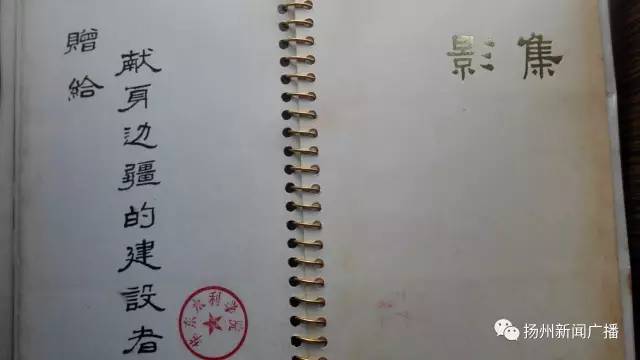 贈給
献身边疆的建設者
影集
扬州新闻广播